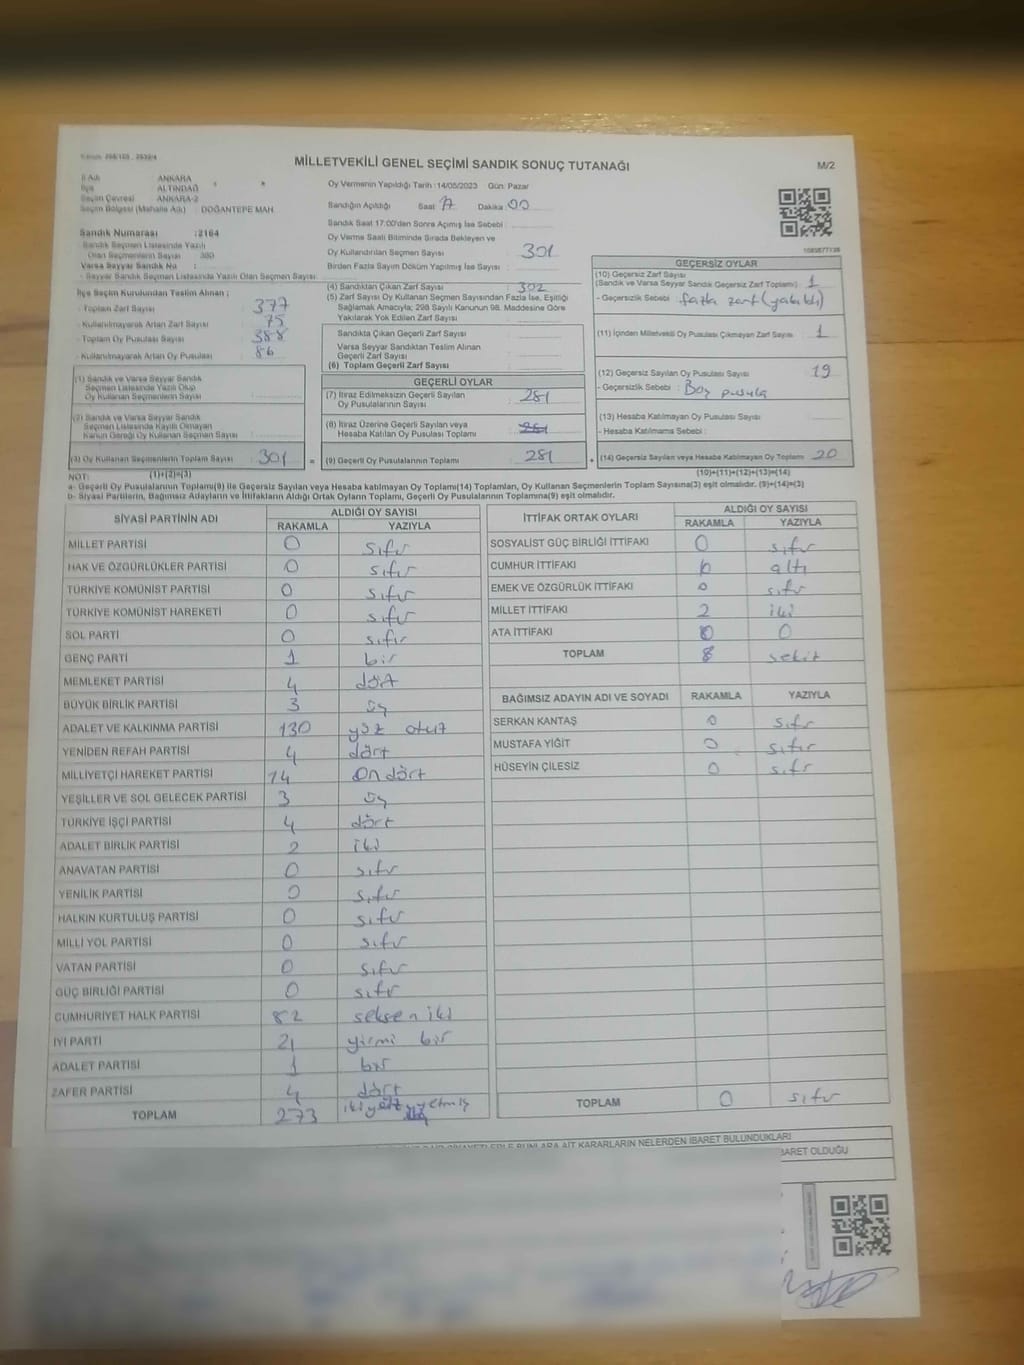 MİLLETVEKİLİ GENEL SEÇİMİ SANDIK SONUÇ TUTANAĞI
M/2
İl Adı ANKARA
İlçe ALTINDAĞ
Seçim Çevresi ANKARA-2
Seçim Bölgesi (Mahalle Adı) : DOĞANTEPE MAH.
Sandık Numarası :2164
Sandık Seçmen Listesinde Yazılı
Olan Seçmenlerin Sayısı
Varsa Seyyar Sandık No :
- Seyyar Sandık Seçmen Listesinde Yazılı Olan Seçmen Sayısı:
İlçe Seçim Kurulundan Teslim Alınan :
- Toplam Zarf Sayısı 377
- Kullanılmayarak Artan Zarf Sayısı 75
- Toplam Oy Pusulası Sayısı 388
- Kullanılmayarak Artan Oy Pusulası 86
(1) Sandık ve Varsa Seyyar Sandık
Seçmen Listesinde Yazılı Olup
Oy Kullanan Seçmenlerin Sayısı :
(2) Sandık ve Varsa Seyyar Sandık
Seçmen Listesinde Kayıtlı Olmayan
Kanun Gereği Oy Kullanan Seçmen Sayısı :
(3) Oy Kullanan Seçmenlerin Toplam Sayısı : 301 =
(1)+(2)=(3)
Oy Vermenin Yapıldığı Tarih :14/05/2023 Gün: Pazar
Sandığın Açıldığı Saat 17 Dakika 00
Sandık Saat 17:00'den Sonra Açılmış İse Sebebi :
Oy Verme Saati Bitiminde Sırada Bekleyen ve
Oy Kullandırılan Seçmen Sayısı 301
Birden Fazla Sayım Döküm Yapılmış İse Sayısı :
(4) Sandıktan Çıkan Zarf Sayısı : 302
(5) Zarf Sayısı Oy Kullanan Seçmen Sayısından Fazla İse, Eşitliği
Sağlamak Amacıyla; 298 Sayılı Kanunun 98. Maddesine Göre
Yakılarak Yok Edilen Zarf Sayısı
Sandıkta Çıkan Geçerli Zarf Sayısı
Varsa Seyyar Sandıktan Teslim Alınan
Geçerli Zarf Sayısı
(6) Toplam Geçerli Zarf Sayısı
GEÇERLİ OYLAR
(7) İtiraz Edilmeksizin Geçerli Sayılan
Oy Pusulalarının Sayısı : 281
(8) İtiraz Üzerine Geçerli Sayılan veya
Hesaba Katılan Oy Pusulası Toplamı : 281
(9) Geçerli Oy Pusulalarının Toplamı : 281 +
GEÇERSİZ OYLAR
(10) Geçersiz Zarf Sayısı
(Sandık ve Varsa Seyyar Sandık Geçersiz Zarf Toplamı) : 1
- Geçersizlik Sebebi : fazla zarf (yakıldı)
(11) İçinden Milletvekili Oy Pusulası Çıkmayan Zarf Sayısı : 1
(12) Geçersiz Sayılan Oy Pusulası Sayısı 19
- Geçersizlik Sebebi : Boş pusula
(13) Hesaba Katılmayan Oy Pusulası Sayısı
- Hesaba Katılmama Sebebi :
(14) Geçersiz Sayılan veya Hesaba Katılmayan Oy Toplamı 20
(10)+(11)+(12)+(13)=(14)
NOT:
a- Geçerli Oy Pusulalarının Toplamı(9) ile Geçersiz Sayılan veya Hesaba katılmayan Oy Toplamı(14) Toplamları, Oy Kullanan Seçmenlerin Toplam Sayısına(3) eşit olmalıdır. (9)+(14)=(3)
b- Siyasi Partilerin, Bağımsız Adayların ve İttifakların Aldığı Ortak Oyların Toplamı, Geçerli Oy Pusulalarının Toplamına(9) eşit olmalıdır.
SİYASİ PARTİNİN ADI ALDIĞI OY SAYISI
RAKAMLA YAZIYLA
MİLLET PARTİSİ 0 sıfır
HAK VE ÖZGÜRLÜKLER PARTİSİ 0 sıfır
TÜRKİYE KOMÜNİST PARTİSİ 0 sıfır
TÜRKİYE KOMÜNİST HAREKETİ 0 sıfır
SOL PARTİ 0 sıfır
GENÇ PARTİ 1 bir
MEMLEKET PARTİSİ 4 dört
BÜYÜK BİRLİK PARTİSİ 3 üç
ADALET VE KALKINMA PARTİSİ 130 yüz otuz
YENİDEN REFAH PARTİSİ 4 dört
MİLLİYETÇİ HAREKET PARTİSİ 14 on dört
YEŞİLLER VE SOL GELECEK PARTİSİ 3 üç
TÜRKİYE İŞÇİ PARTİSİ 4 dört
ADALET BİRLİK PARTİSİ 2 iki
ANAVATAN PARTİSİ 0 sıfır
YENİLİK PARTİSİ 0 sıfır
HALKIN KURTULUŞ PARTİSİ 0 sıfır
MİLLİ YOL PARTİSİ 0 sıfır
VATAN PARTİSİ 0 sıfır
GÜÇ BİRLİĞİ PARTİSİ 0 sıfır
CUMHURİYET HALK PARTİSİ 82 seksen iki
İYİ PARTİ 21 yirmi bir
ADALET PARTİSİ 1 bir
ZAFER PARTİSİ 4 dört
TOPLAM 273 iki yüz yetmiş
İTTİFAK ORTAK OYLARI ALDIĞI OY SAYISI
RAKAMLA YAZIYLA
SOSYALİST GÜÇ BİRLİĞİ İTTİFAKI 0 sıfır
CUMHUR İTTİFAKI 6 altı
EMEK VE ÖZGÜRLÜK İTTİFAKI 0 sıfır
MİLLET İTTİFAKI 2 iki
ATA İTTİFAKI 0 0
TOPLAM 8 sekiz
BAĞIMSIZ ADAYIN ADI VE SOYADI RAKAMLA YAZIYLA
SERKAN KANTAŞ 0 sıfır
MUSTAFA YİĞİT 0 sıfır
HÜSEYİN ÇİLESİZ 0 sıfır
TOPLAM 0 sıfır
BUNLARA AİT KARARLARIN NELERDEN İBARET BULUNDUKLARI
İBARET OLDUĞU